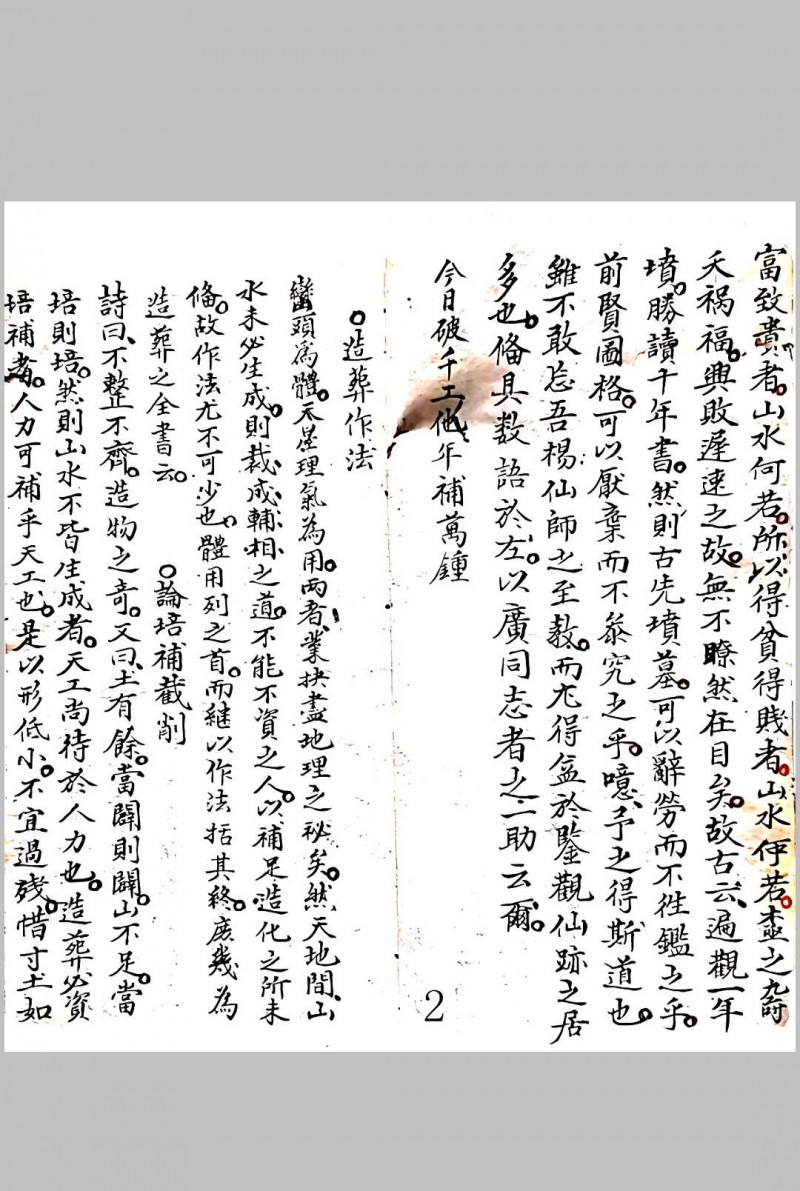 富致貴者。山水何若。所以得貧得賤者。山水何若。壽之
夭禍福。興敗遲速之故。無不瞭然在目矣。故古云、遍觀一年
墳。勝讀十年書。然則古先墳墓。可以辭勞而不徃鑑之乎。
前賢啚格。可以厭棄而不叅究之乎。噫、予之得斯道也。
雖不敢忘吾楊仙師之至教。而尤得益於鑒觀仙跡之居
多也。俻具数語於左。以廣同志者之一助云爾。
今日破千工他年補萬鍾
2
○造葬作法
巒頭為體。天星理氣為用。两者、業抉盡地理之秘矣。然天地間、山
水未必生成。則裁成輔相之道。不能不資之人。以補足造化之所未
俻。故作法尤不可少也。體用列之首。而継以作法括其終。庻幾為
造葬之全書云。
○論培補截削
詩曰、不整不齊。造物之竒。又曰、土有餘。當闢則闢。山不足。當
培則培。然則山水不皆生成者。天工尚待於人力也。造葬必資
培補者。人力可補乎天工也。是以形低小。不宜過殘。惜寸土如